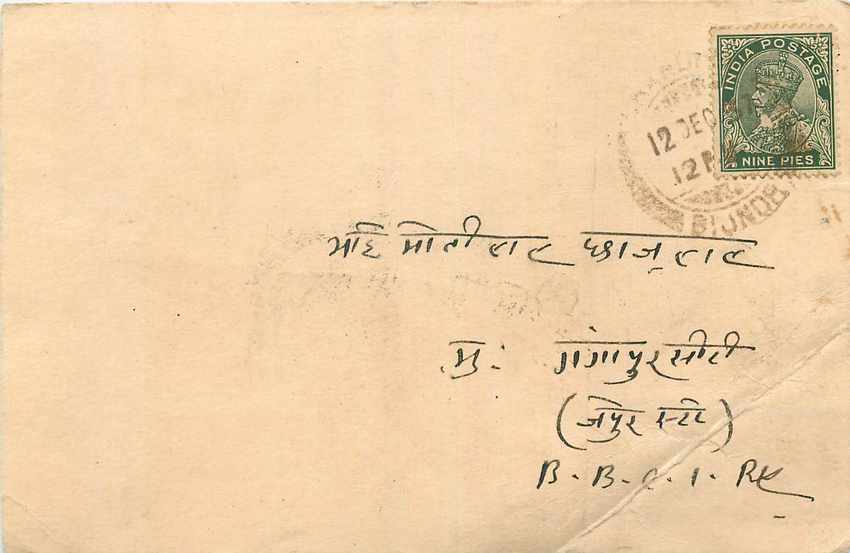 INDIA POSTAGE
NINE PIES
12 DEC
12
BIJNOR
भाई मोतीलाल
मु: गंगापुर सीटी
(जेपुर स्टेट)
B. B. C. I. Ry